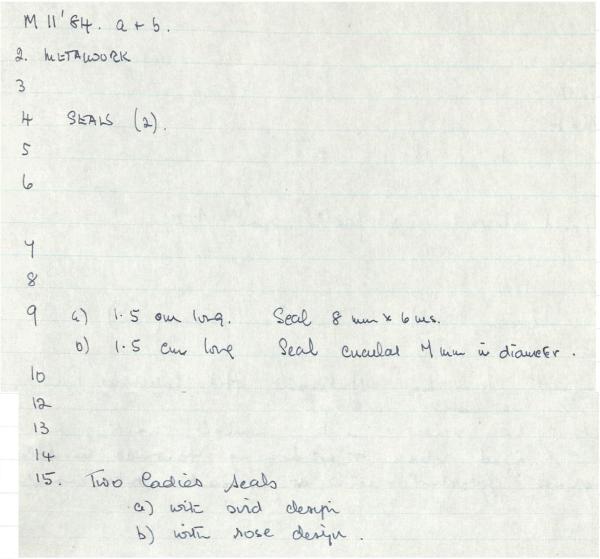 M 11'84. a + b.
2. METALWORK
3
4 SEALS (2).
5
6
7
8
9 a) 1.5 cm long. Seal 8 mm x 6 ms.
b) 1.5 cm long Seal circular 7 mm in diameter.
10
12
13
14
15. Two ladies seals
a) with design
b) with rose design.